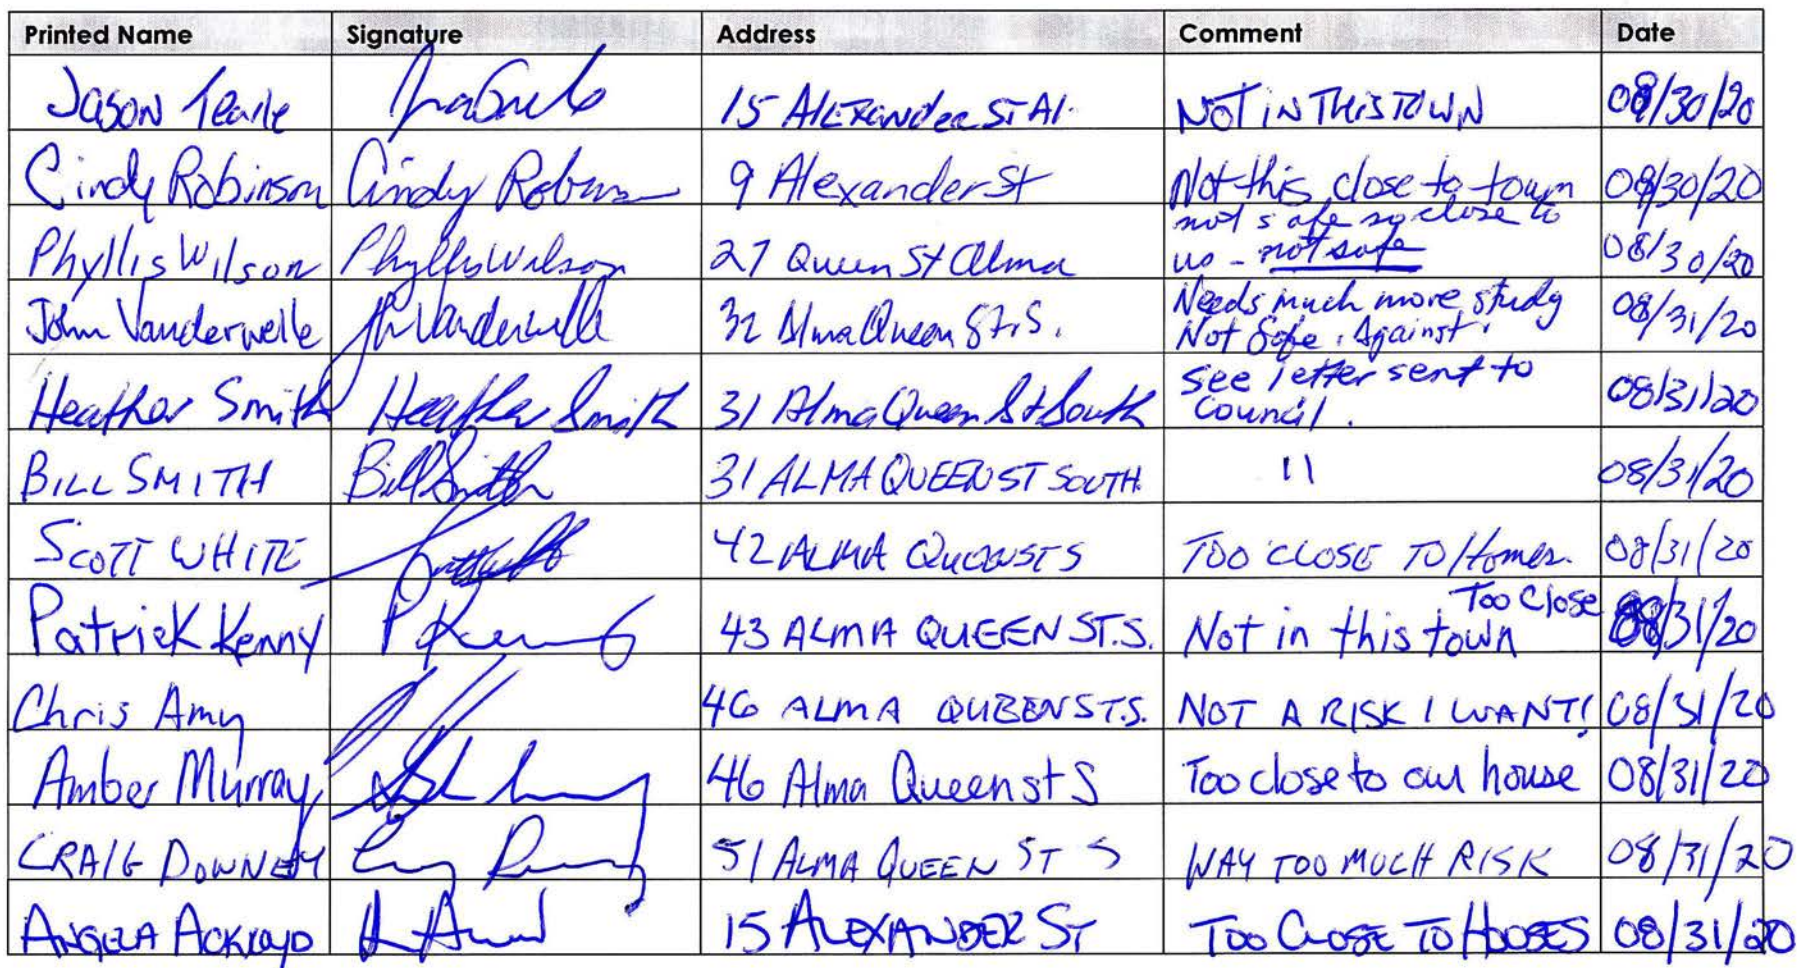 Printed Name Signature Address Comment Date
Jason Tearle 15 Alexander St Al. NOT IN THIS TOWN 08/30/20
Cindy Robinson Cindy Robinson 9 Alexander St Not this close to town 08/30/20
not safe so close to
Phyllis Wilson Phyllis Wilson 27 Queen St Alma us - not safe 08/30/20
Needs much more study
John Vanderwelle Vanderwelle 32 Alma Queen St. S. Not Safe. Against. 08/31/20
see letter sent to
Heather Smith Heather Smith 31 Alma Queen St South Council. 08/31/20
BILL SMITH Bill Smith 31 ALMA QUEEN ST SOUTH 11 08/31/20
SCOTT WHITE 42 ALMA QUEEN ST S TOO CLOSE TO Homes. 08/31/20
Too Close
Patrick Kenny P Kenny 43 ALMA QUEEN ST. S. Not in this town 08/31/20
Chris Amy 46 ALMA QUEEN ST. S. NOT A RISK I WANT! 08/31/20
Amber Murray 46 Alma Queen st S Too close to our house 08/31/20
CRAIG DOWNEY 51 ALMA QUEEN ST S WAY TOO MUCH RISK 08/31/20
ANGELA ACKROYD 15 ALEXANDER ST TOO CLOSE TO HOUSES 08/31/20